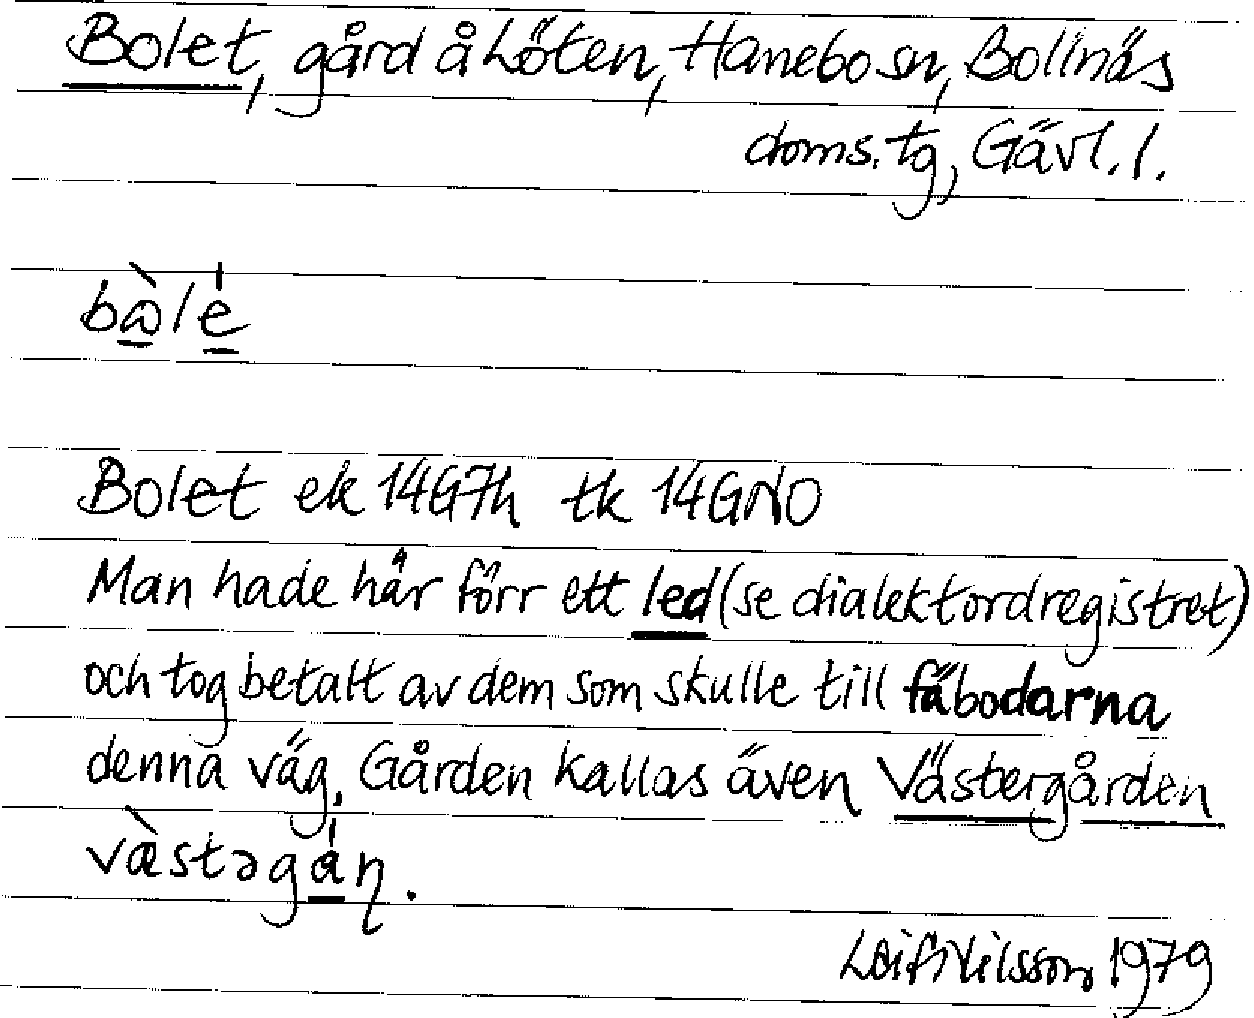 Bolet, gård å Löten, Hanebo sn, Bollnäs
doms. tg, Gävl. l.
bὼlè
Bolet ek 14G7h tk 14GNO
Man hade här förr ett led (se dialektordregistret)
och tog betalt av dem som skulle till fäbodarna
denna väg. Gården kallas även Västergården
væ̀stəgáɳ.
Leif Nilsson 1979